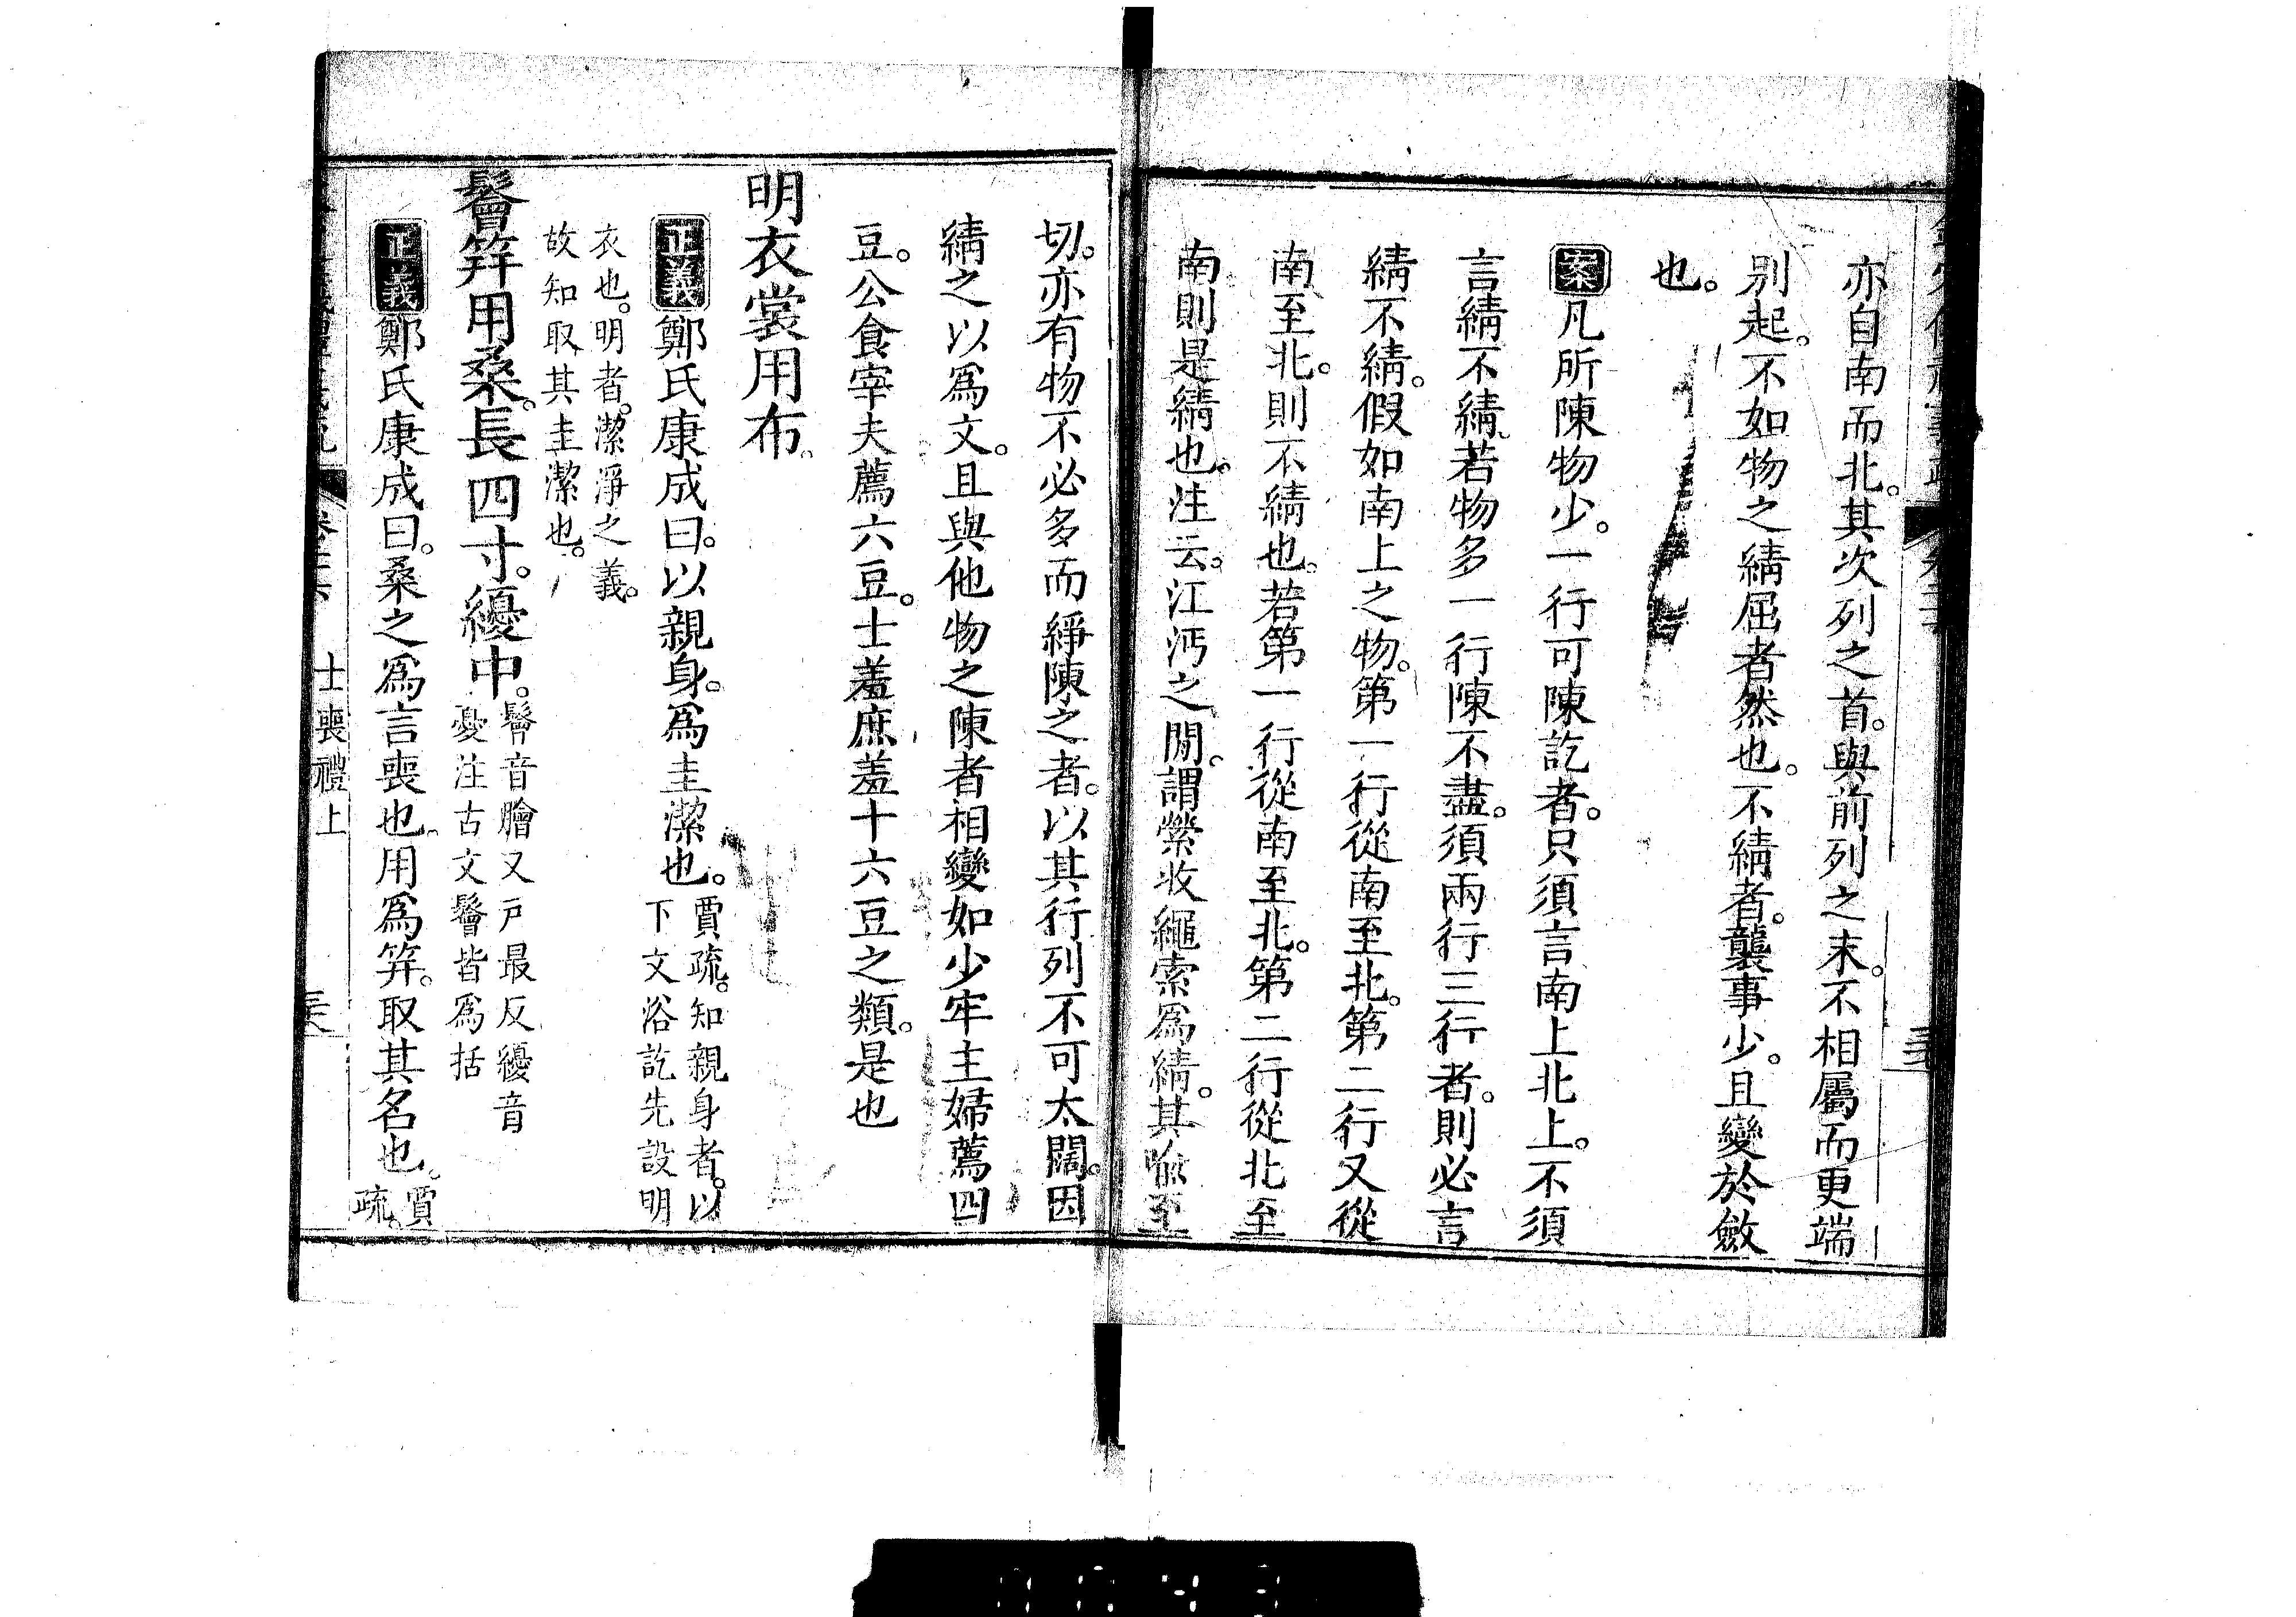 亦自南而北。其次列之首。與前列之末。不相屬而更端
别起。不如物之綪屈者然也。不綪者。襲事少。且變於斂
也。
案凡所陳物少。一行可陳訖者。只須言南上北上。不須
言綪不綪。若物多一行陳不盡。須兩行三行者。則必言
綪不綪。假如南上之物。第一行從南至北。第二行又從
南至北。則不綪也。若第一行從南至北。第二行從北至
南。則是綪也。注云。江沔之閒。謂縈收繩索爲綪。其喩至
切。亦有物不必多而綪陳之者。以其行列不可太闊。因
綪之以爲文。且與他物之陳者相變如少牢主婦薦四
豆。公食宰夫薦六豆。士羞庶羞十六豆之類。是也
明衣裳用布。
正義鄭氏康成曰。以親身。爲圭潔也。賈疏。知親身者。以
下文浴訖先設明
衣也。明者。潔淨之義。
故知取其圭潔也。
鬠笄用桑。長四寸。纋中。鬠音膾又戸最反纋音
憂注古文鬠皆爲括
正義鄭氏康成曰。桑之爲言喪也。用爲笄。取其名也。賈
疏。
士喪禮上